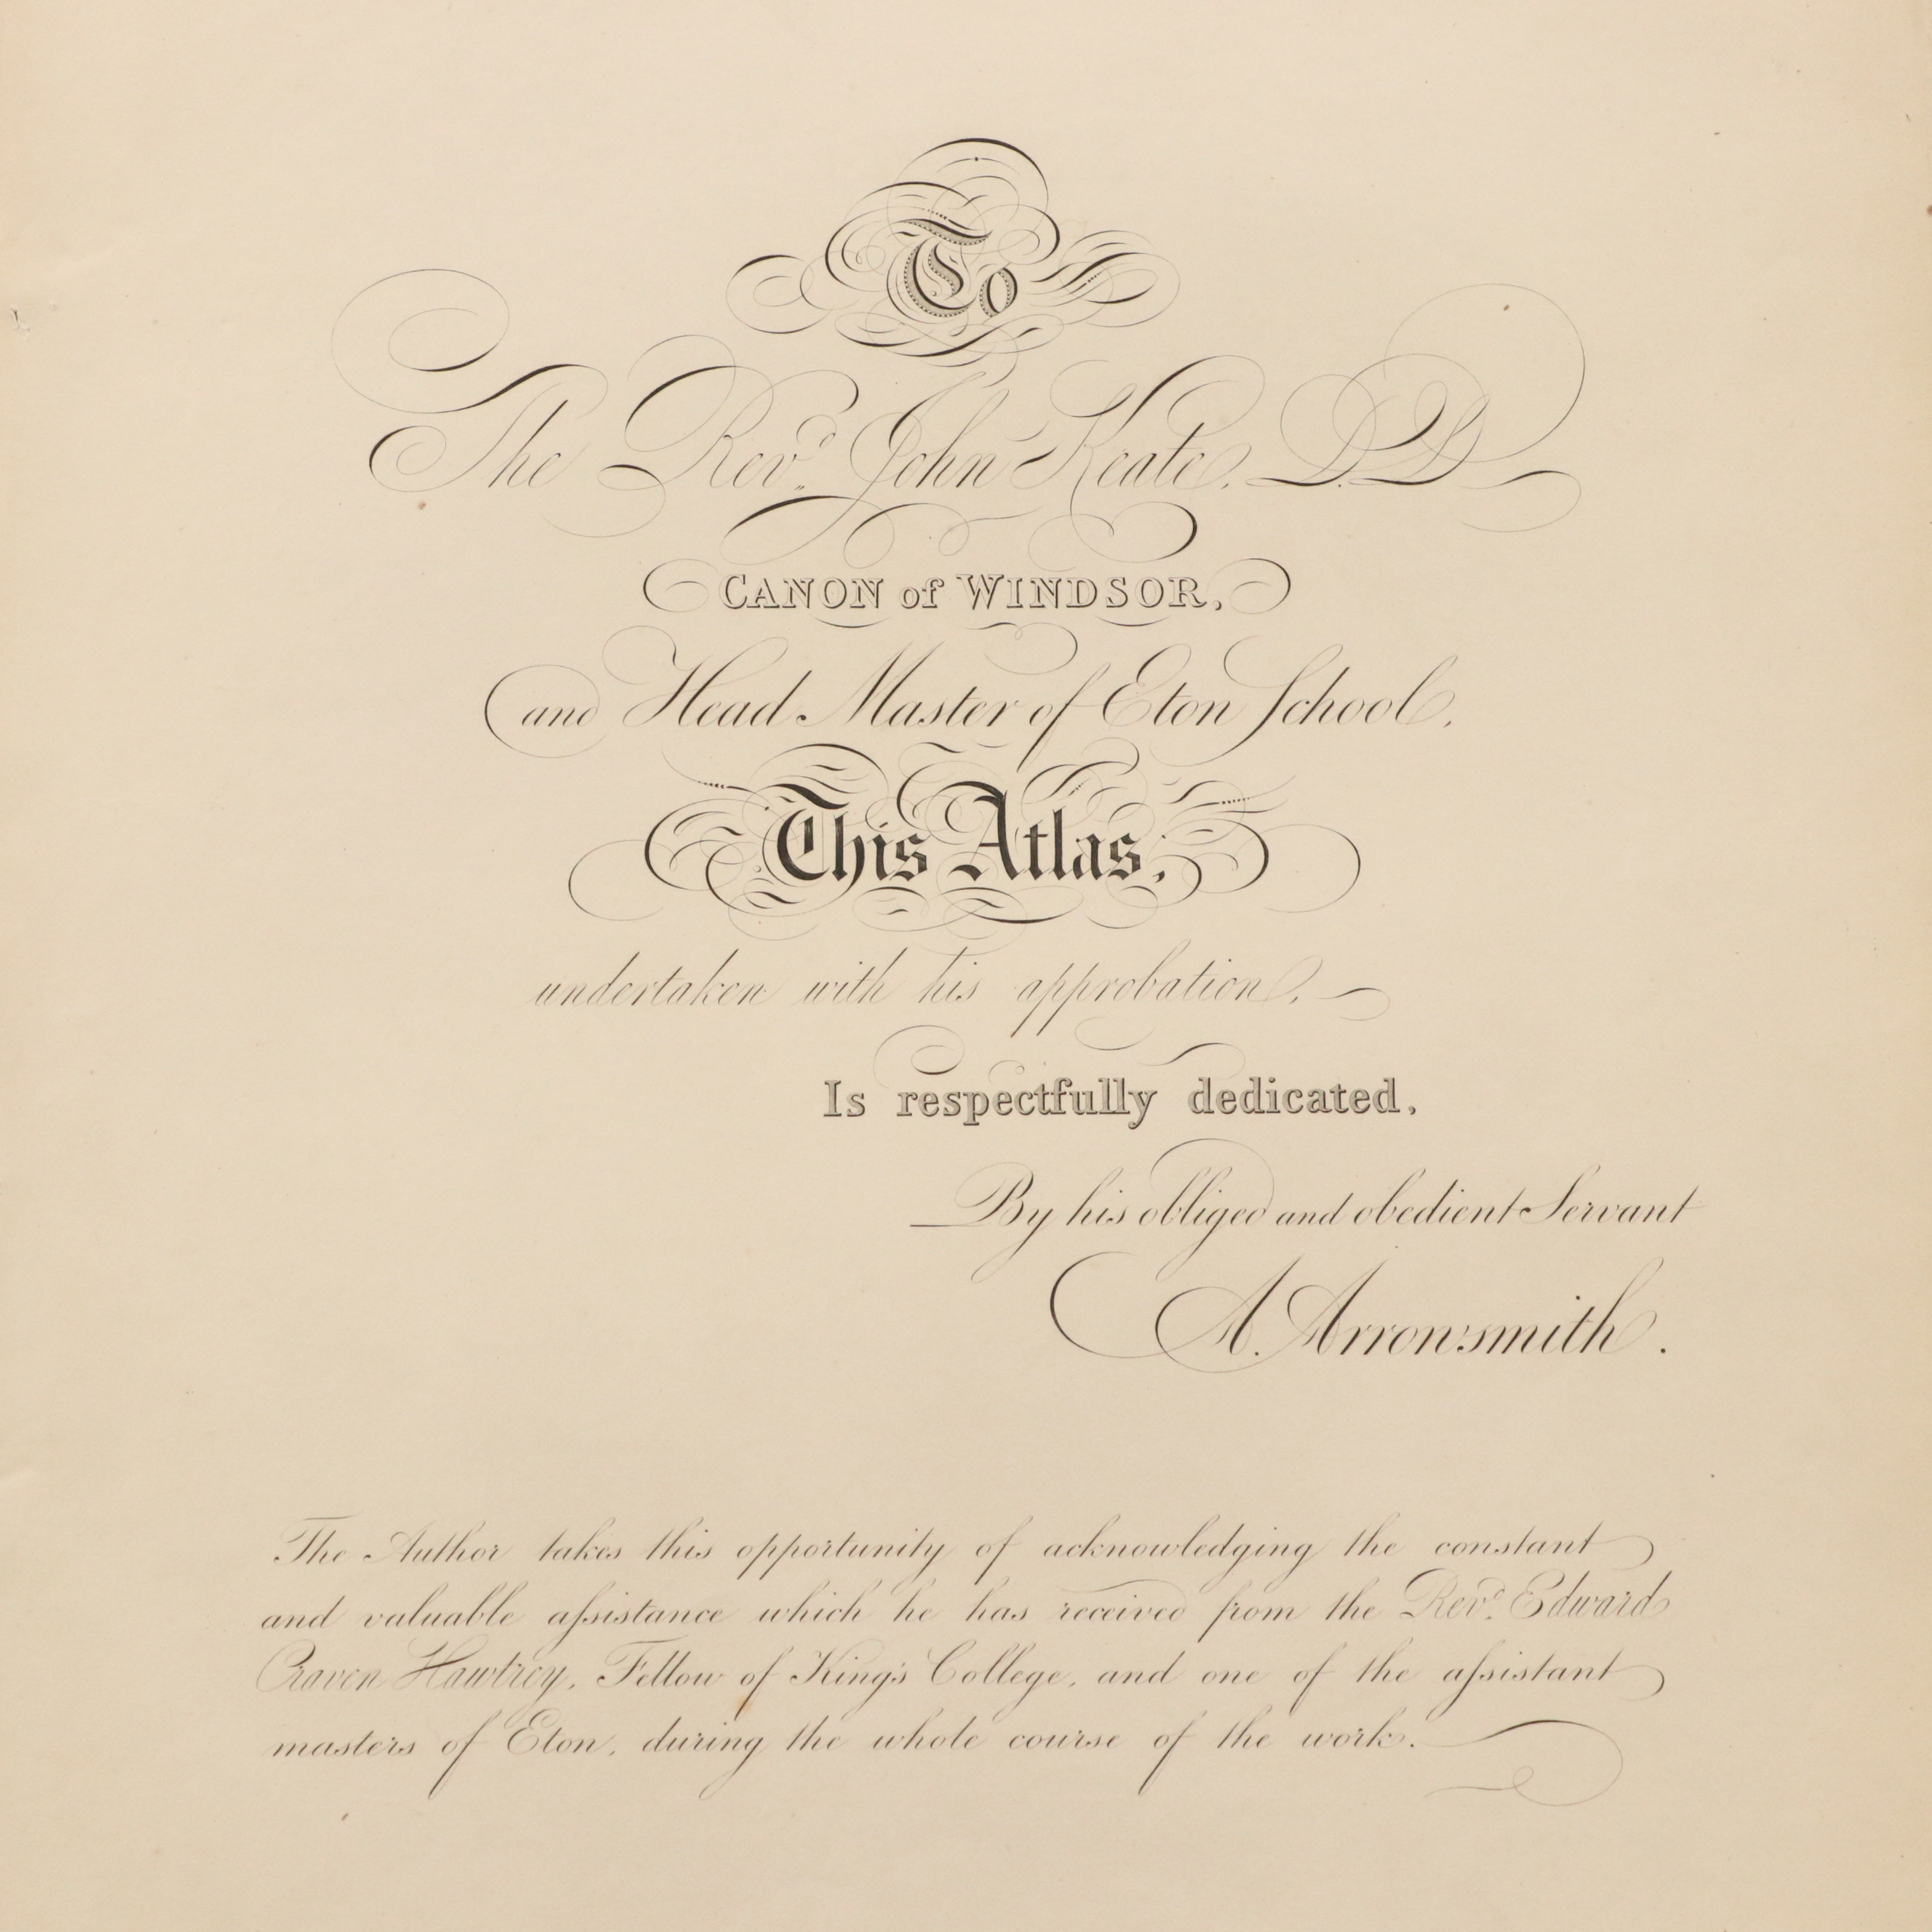 To
The Revd. John Keate, D.D.
CANON of WINDSOR,
and Head Master of Eton School,
This Atlas,
undertaken with his approbation,
Is respectfully dedicated,
By his obliged and obedient Servant
A. Arrowsmith.
The Author takes this opportunity of acknowledging the constant
and valuable aſsistance which he has received from the Revd. Edward
Craven Hawtrey, Fellow of King's College, and one of the aſsistant
masters of Eton, during the whole course of the work.